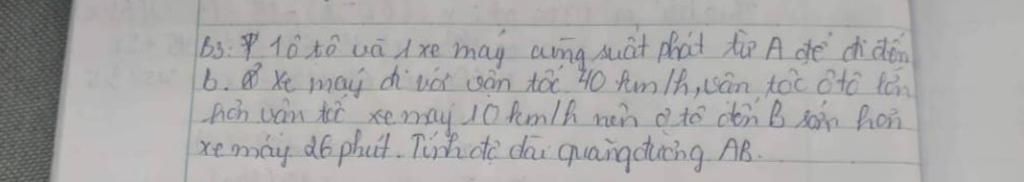 B3: 1 ô tô và 1 xe máy cùng suất phát từ A để đi đến
b. xe máy đi với vận tốc 40 km/h, vận tốc ôtô lớn
hơn vận tốc xe máy 10 km/h nên ô tô đến B sớm hơn
xe máy 26 phút. Tính độ dài quãng đường AB.